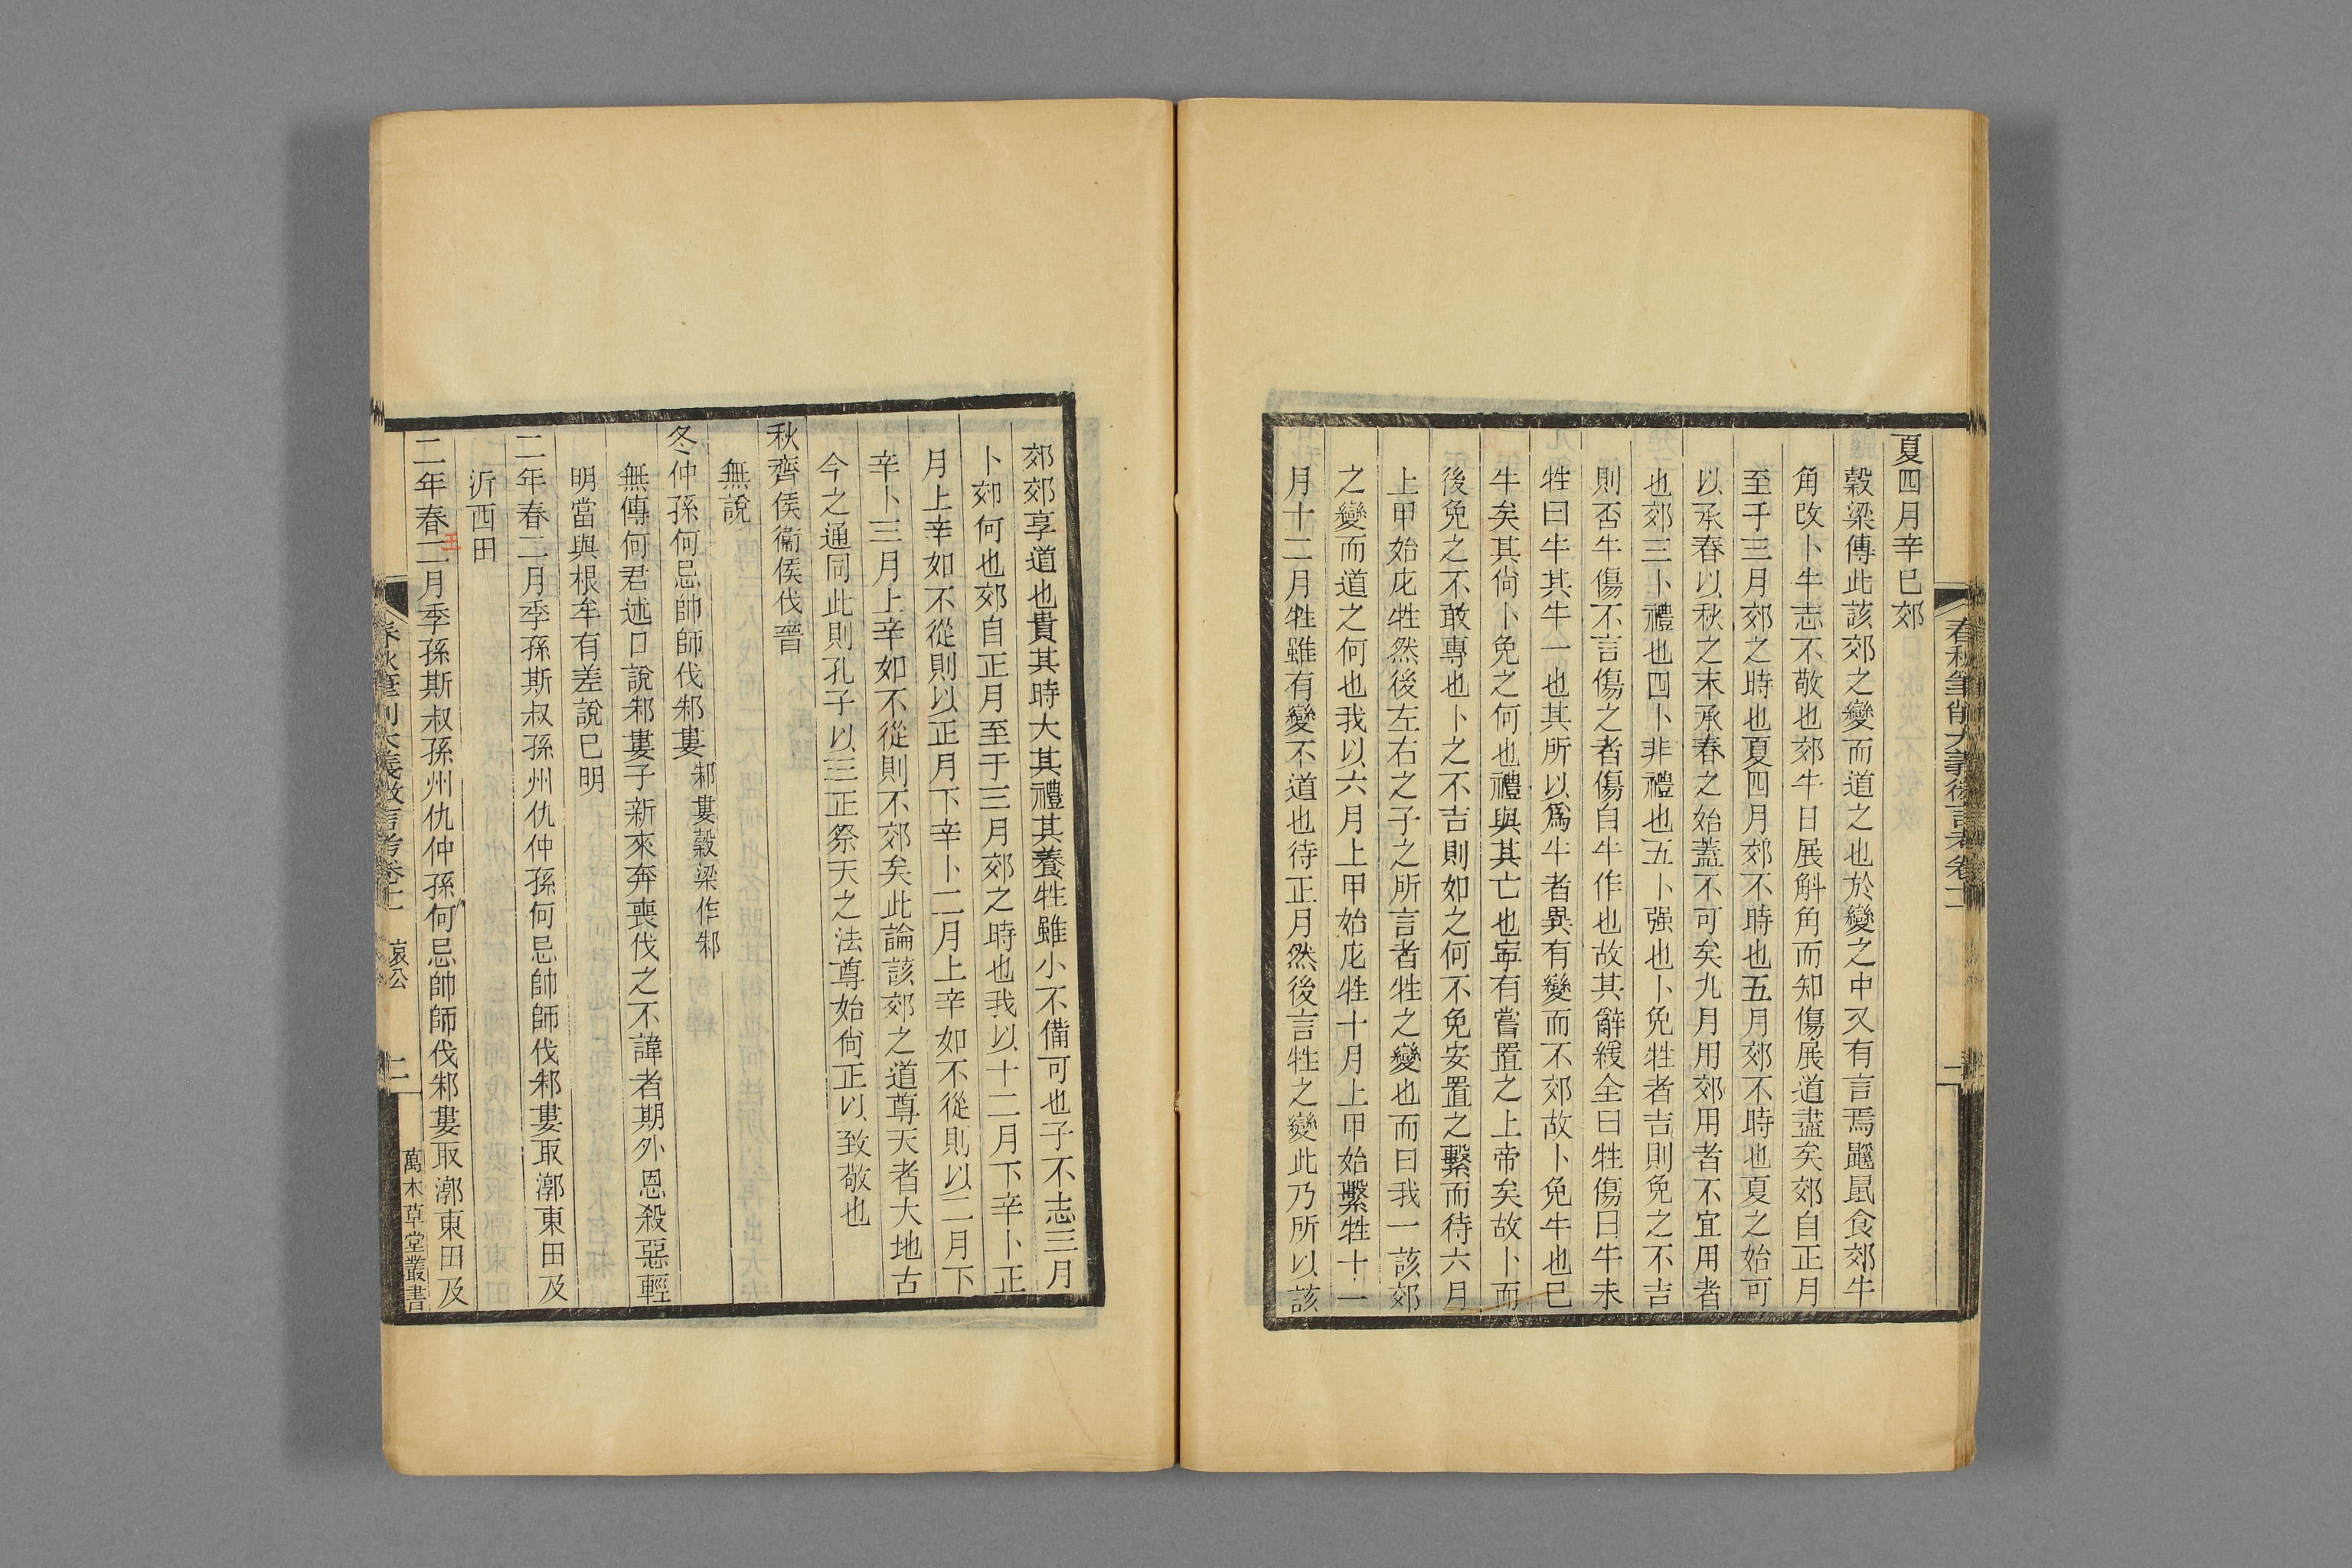 夏四月辛巳郊
穀梁傳此該郊之變而道之也於變之中又有言焉鼷鼠食郊牛
角改卜牛志不敬也郊牛日展斛角而知傷展道盡矣郊自正月
至于三月郊之時也夏四月郊不時也五月郊不時也夏之始可
以承春以秋之末承春之始蓋不可矣九月用郊用者不宜用者
也郊三卜禮也四卜非禮也五卜强也卜免牲者吉則免之不吉
則否牛傷不言傷之者傷自牛作也故其辭緩全曰牲傷曰牛未
牲曰牛其牛一也其所以爲牛者異有變而不郊故卜免牛也已
牛矣其尙卜免之何也禮與其亡也寧有嘗置之上帝矣故卜而
後免之不敢專也卜之不吉則如之何不免安置之繫而待六月
上甲始庀牲然後左右之子之所言者牲之變也而曰我一該郊
之變而道之何也我以六月上甲始庀牲十月上甲始繫牲十一
月十二月牲雖有變不道也待正月然後言牲之變此乃所以該
郊郊享道也貴其時大其禮其養牲雖小不備可也子不志三月
卜郊何也郊自正月至于三月郊之時也我以十二月下辛卜正
月上辛如不從則以正月下辛卜二月上辛如不從則以二月下
辛卜三月上辛如不從則不郊矣此論該郊之道尊天者大地古
今之通同此則孔子以三正祭天之法尊始尙正以致敬也
秋齊侯衞侯伐晉
無說
冬仲孫何忌帥師伐邾婁 邾婁穀梁作邾
無傳何君述口說邾婁子新來奔喪伐之不諱者期外恩殺惡輕
明當與根牟有差說巳明
二年春二月季孫斯叔孫州仇仲孫何忌帥師伐邾婁取漷東田及
沂西田
二年春王二月季孫斯叔孫州仇仲孫何忌帥師伐邾婁取漷東田及
春秋筆削大義微言考卷十一 哀公 二 萬木草堂叢書